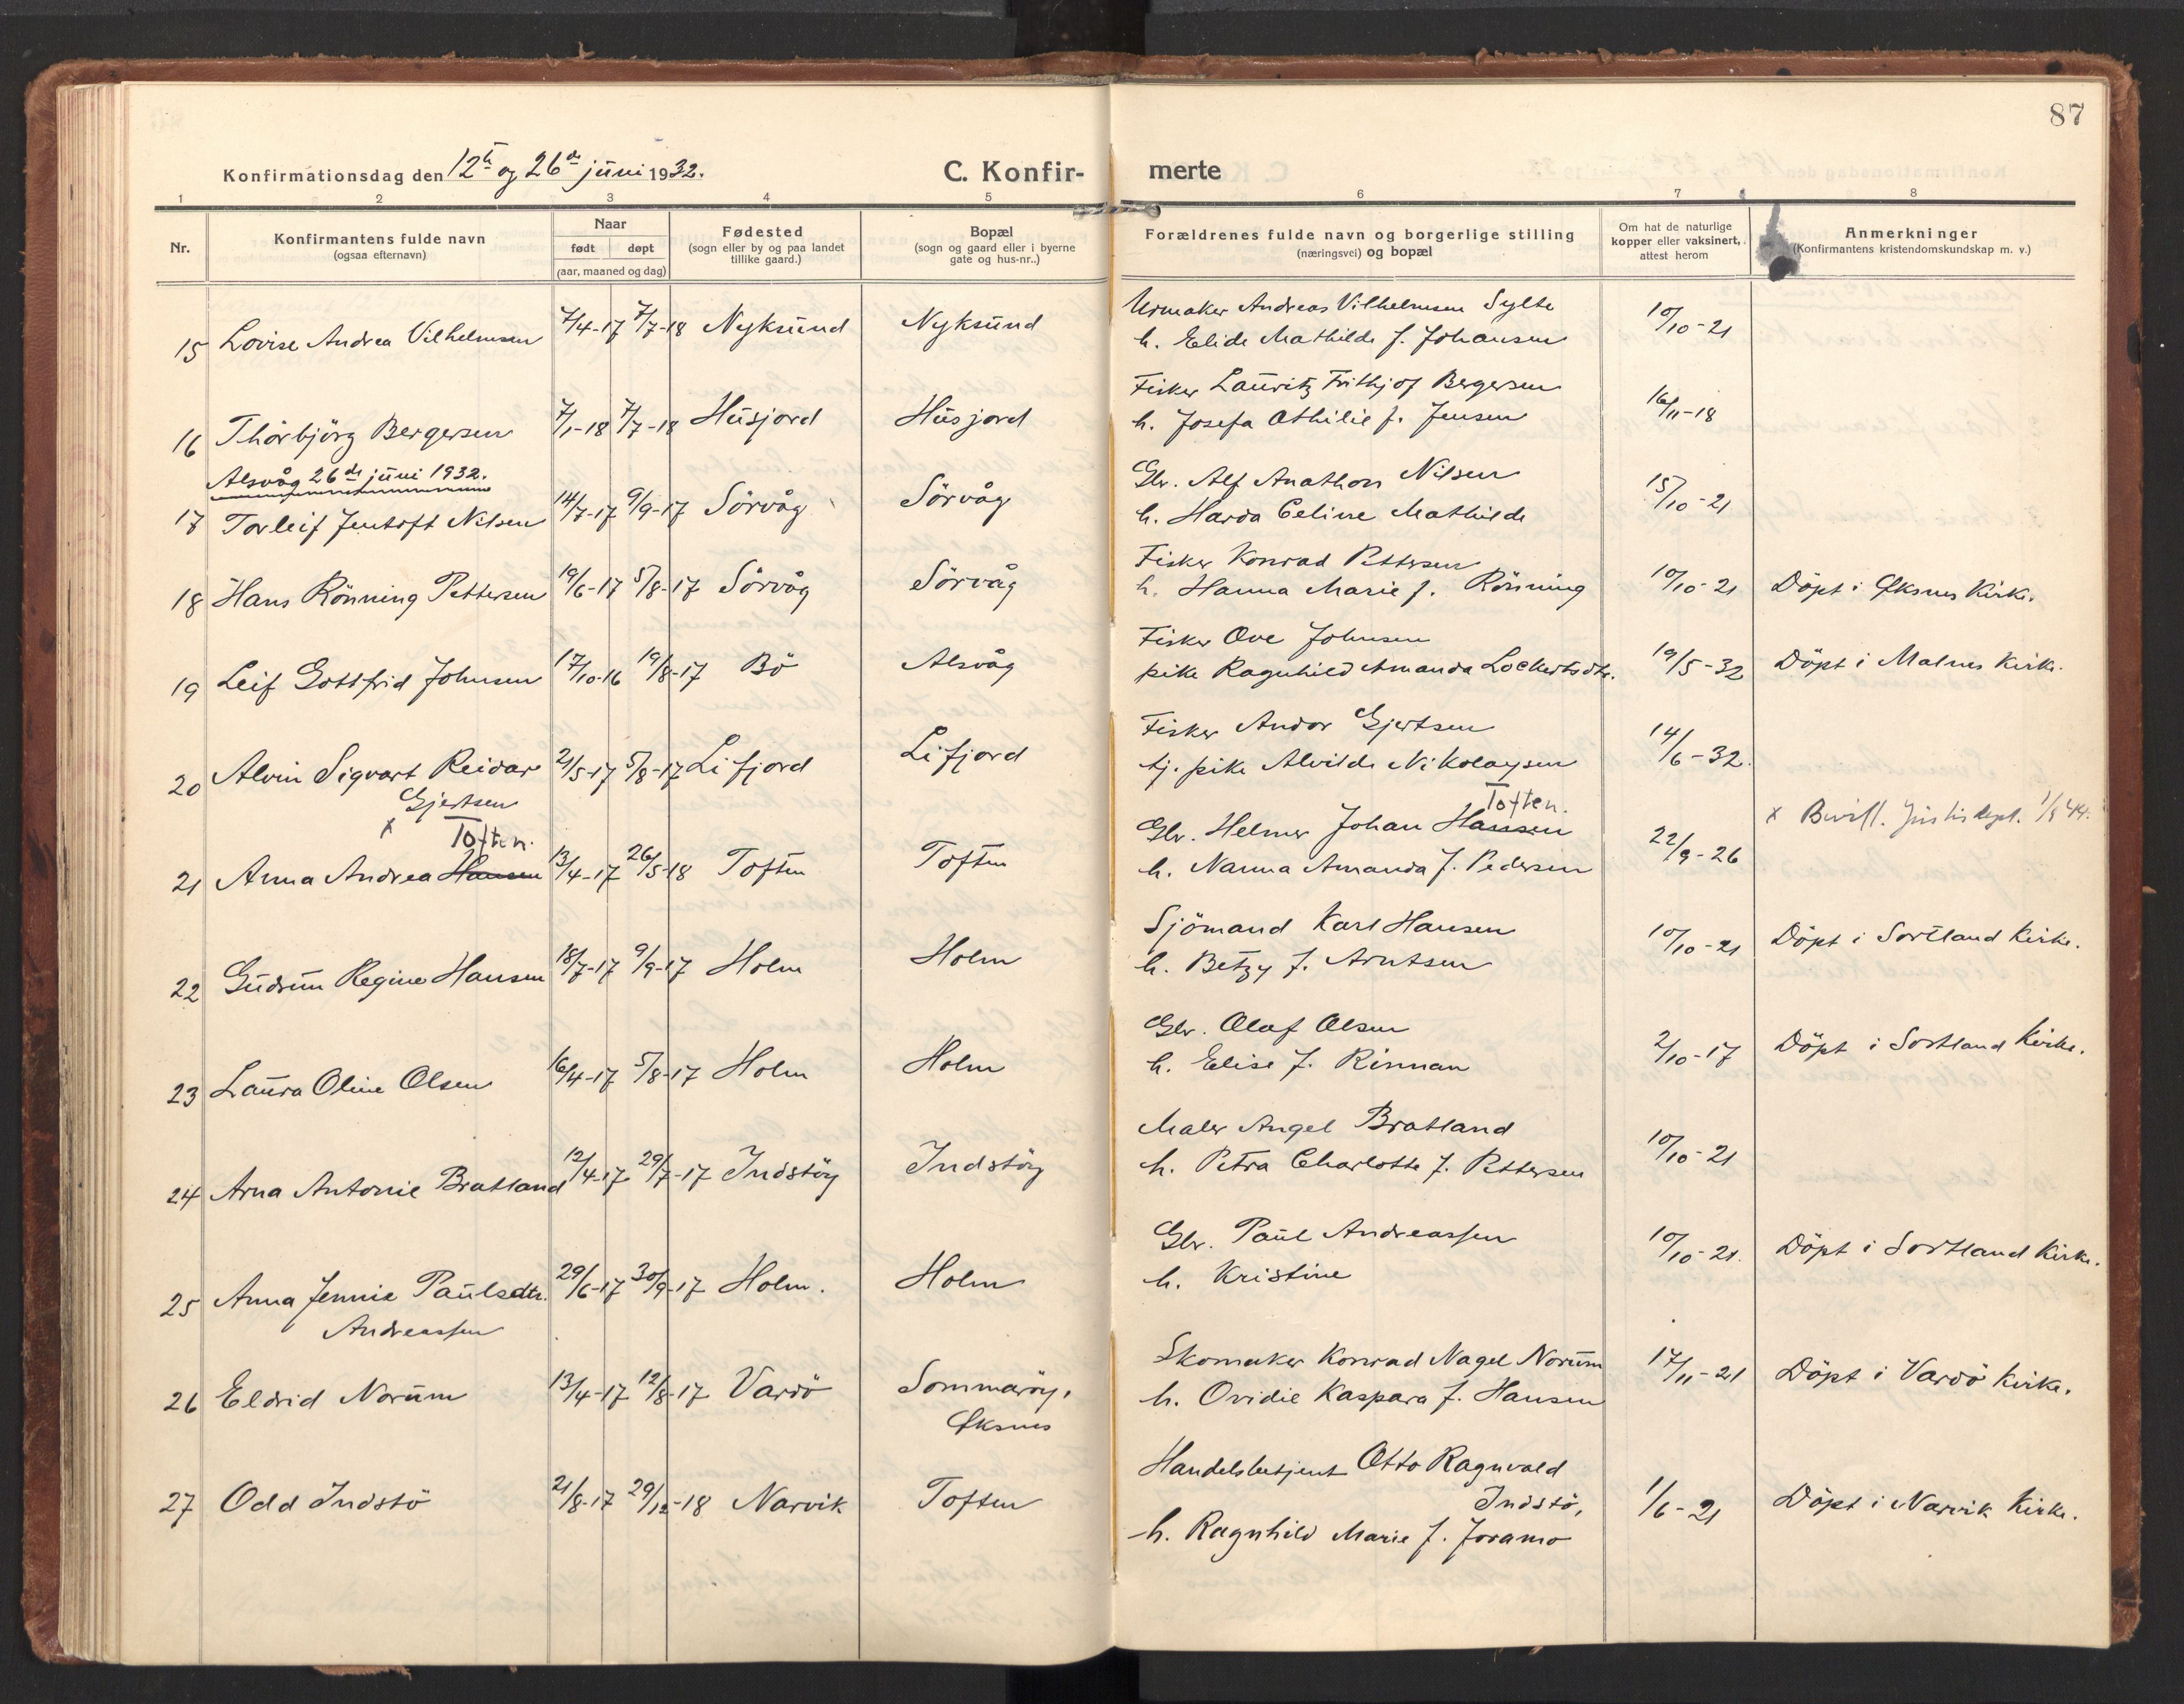 87
Konfirmationsdag den 12te og 26de juni 1932.
C. Konfir-
merte
1 2 3 4 5 6 7 8
Nr.
Konfirmantens fulde navn
(ogsaa efternavn)
Naar
født døpt
(aar, maaned og dag)
Fødested
(sogn eller by og paa landet
tillike gaard.)
Bopæl
(sogn og gaard eller i byerne
gate og hus-nr..)
Forældrenes fulde navn og borgerlige stilling
(næringsvei) og bopæl
Om hat de naturlige
kopper eller vaksinert,
attest herom
Anmerkninger
(Konfirmantens kristendomskundskap m. v.)
15 Lovise Andrea Vilhelmsen 7/4-17 7/7-18 Nyksund Nyksund
Urmaker Andreas Vilhelmsen Sylte
h. Elide Mathilde f. Johansen
10/10-21
16 Thorbjörg Bergersen 7/1-18 7/7-18 Husjord Husjord
Fisker Lauritz Frithjof Bergersen
h. Josefa Othilie f. Jensen
16/11-18
Alsvåg 26de juni 1932.
17 Torleif Jentoft Nilsen 14/7-17 9/9-17 Sörvåg Sörvåg
Gbr. Alf Anathon Nilsen
h. Harda Celine Mathilde
15/10-21
18 Hans Rönning Pettersen 19/6-17 5/8-17 Sörvåg Sörvåg
Fisker Konrad Pettersen
h. Hanna Marie f. Rönning
10/10-21 Döpt i Øksnes Kirke.
19 Leif Gottfrid Johnsen 17/10-16 19/8-17 Bö Alsvåg
Fisker Ove Johnsen
pike Ragnhild Amanda Lockertsdtr.
19/5-32 Döpt i Malnes Kirke.
20 Alvin Sigvart Reidar 21/5-17 5/8-17 Lifjord Lifjord
Gjertsen
Fisker Andor Gjertsen
tj. pike Alvilde Nikolaysen
14/6-32.
x Toften.
21 Anna Andrea Hansen 13/4-17 26/5-18 Toften Toften
Toften.
Gbr. Helmer Johan Hansen
h. Nanna Amanda f. Pedersen
22/9-26
x Bevill. Justisdept. 1/8 44.
22 Gudrun Regine Hansen 18/7-17 9/9-17 Holm Holm
Sjömand Karl Hansen
h. Betzy f. Arntsen
10/10-21 Döpt i Sortland Kirke.
23 Laura Oline Olsen 16/4-17 5/8-17 Holm Holm
Gbr. Olaf Olsen
h. Elise f. Rinnan
2/10-17 Döpt i Sortland Kirke.
24 Arna Antonie Bratland 12/4-17 29/7-17 Indstöy Indstöy
Maler Angel Bratland
h. Petra Charlotte f. Pettersen
10/10-21
25 Anna Jennie Paulsdtr. 29/6-17 30/9-17 Holm. Holm
Andreassen
Gbr. Paul Andreassen
h. Kristine
10/10-21. Döpt i Sortland Kirke.
26 Eldrid Norum 13/4-17 12/8-17 Vardö Sommaröy,
Øksnes
Skomaker Konrad Nagel Norum
h. Ovidie Kaspara f. Hansen
17/11-21 Döpt i Vardö Kirke.
27 Odd Indstö 21/8-17 29/12-18 Narvik Toften
Handelsbetjent Otto Ragnvald
Indstö,
h. Ragnhild Marie f. Joramo
1/6-21 Döpt i Narvik Kirke.